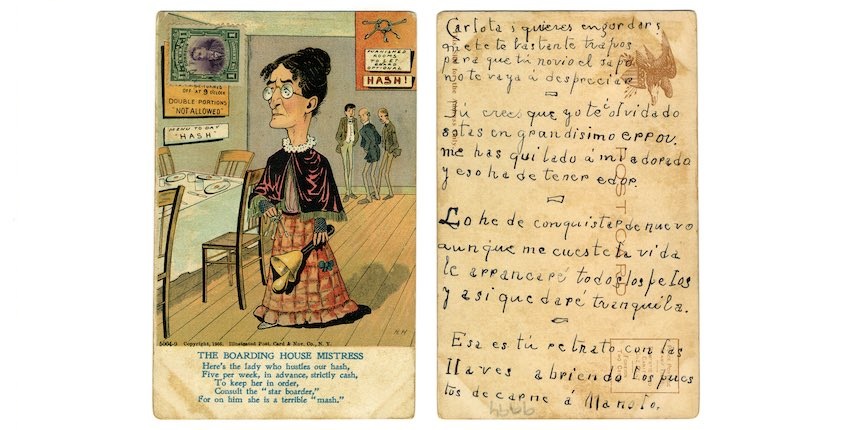 OFF AT 9 O'CLOCK
DOUBLE PORTIONS
"NOT ALLOWED"
MENU TO DAY
"HASH"
FURNISHED
ROOMS
TO LET
BOARD
OPTIONAL
HASH!
5004-9 Copyright, 1905, Illustrated Post. Card & Nov. Co., N. Y.
THE BOARDING HOUSE MISTRESS
Here's the lady who hustles our hash,
Five per week, in advance, strictly cash,
To keep her in order,
Consult the "star boarder,"
For on him she is a terrible "mash."
Carlota si quieres engordar
metete bastante trapos
para que tú novio el sapo
no te vaya á despreciar
Tú crees que yo te olvidado
estas en grandisimo error.
me has quitado á mi adorado
y eso ha de tener edor.
Lo he de conquistar de nuevo
aunque me cueste la vida
le arrancaré todos los pelos
y asi que daré tranquila.
Esa es tú retrato con las
llaves abriendo los pues
tos de carne á Manolo.
POST CARD